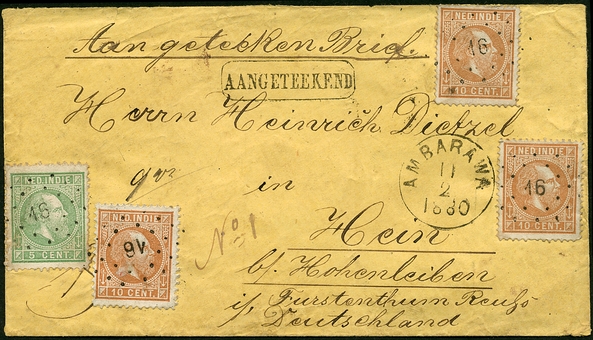 Aangeteeken Brief.
AANGETEEKEND
Herrn Heinrich Dietzel
in
Hein
b/ Hohenleiben
i/ Furstenthum Reuß
Deutschland
No 1
AMBARAWA
11
2
1880
NED. INDIE
16
10 CENT.
NED. INDIE
16
10 CENT.
NED. INDIE
16
5 CENT.
NED. INDIE
16
10 CENT.